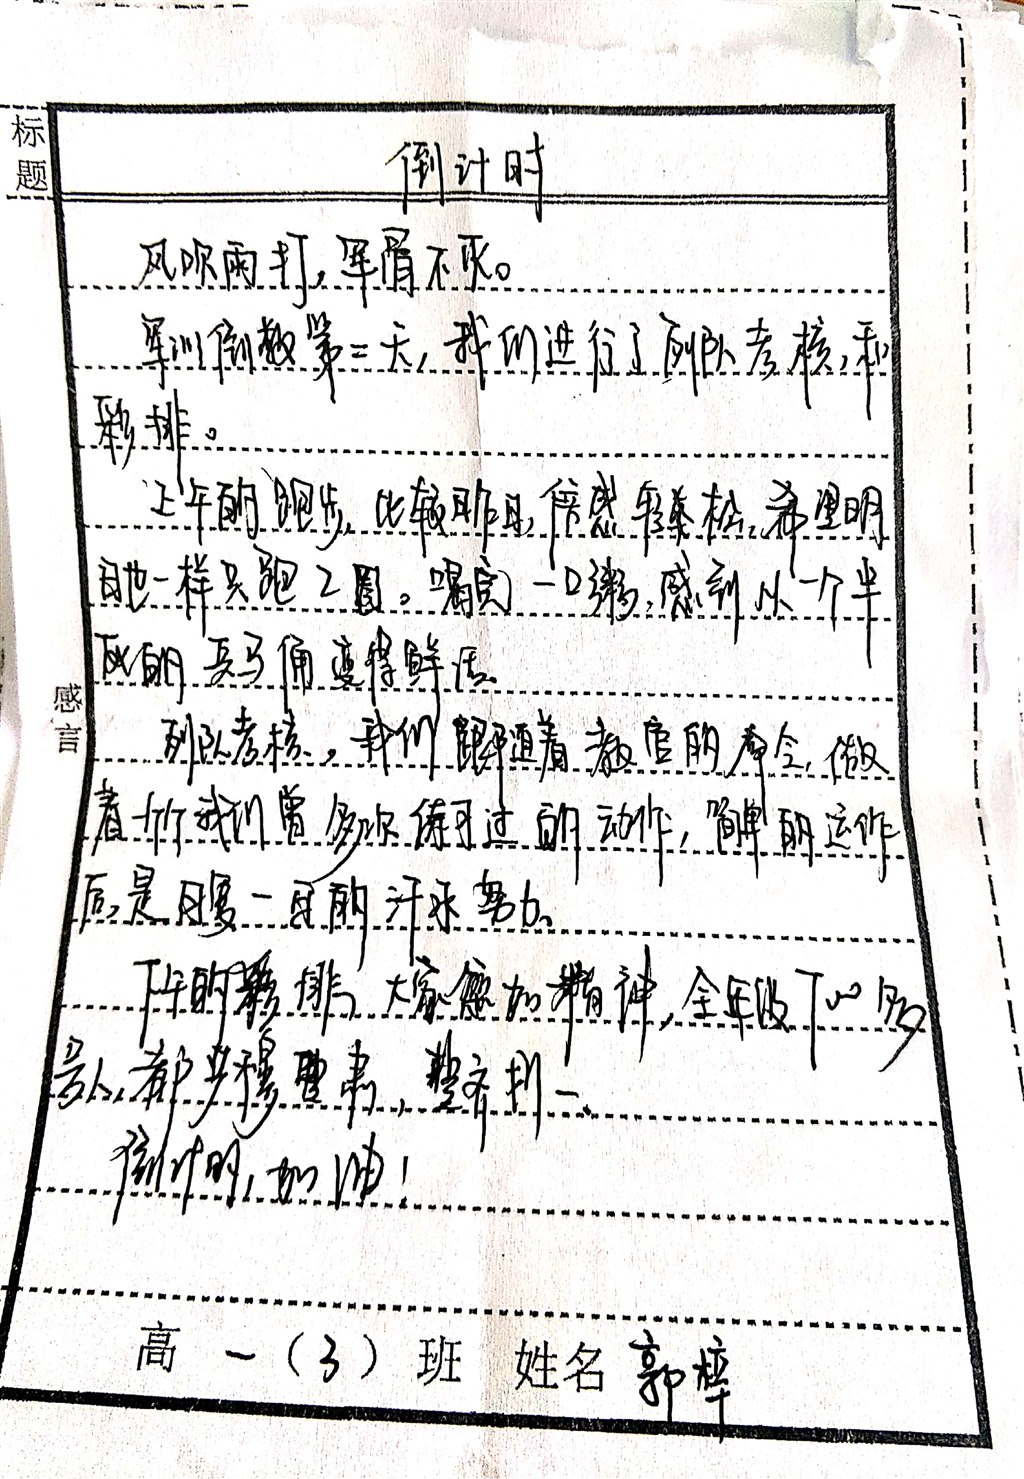 标题
倒计时
风吹雨打,军眉不灭。
军训倒数第二天,我们进行了列队考核,和
彩排。
上午的跑步,比较昨日,倍感轻松,希望明
日也一样只跑2圈。喝完一口粥,感到从一个半
死的兵马俑变得鲜活。
感言
列队考核,我们跟随着教官的命令,做
着一个个我们曾多次练习过的动作,简单的运作
后,是日复一日的汗水努力。
下午的彩排,大家愈加精神,全年级1100多
号人,都步穆曹肃,整齐划一。
倒计时,加油!
高一(3)班 姓名 郭梓